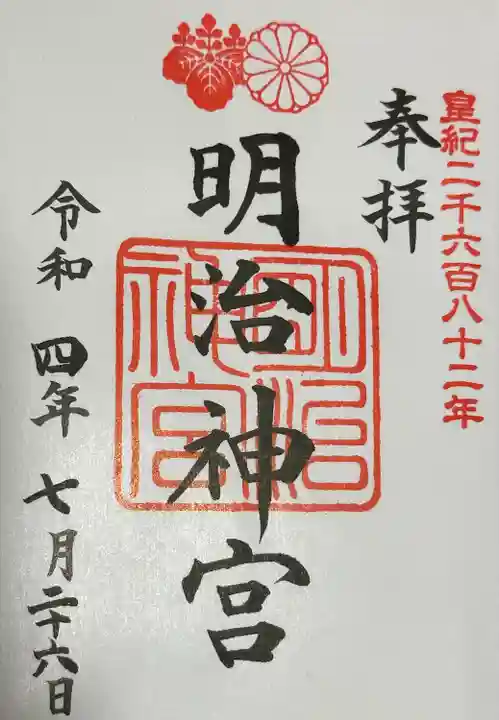 皇紀二千六百八十二年
奉拝
明治神宮
明治神宮
令和四年七月二十六日